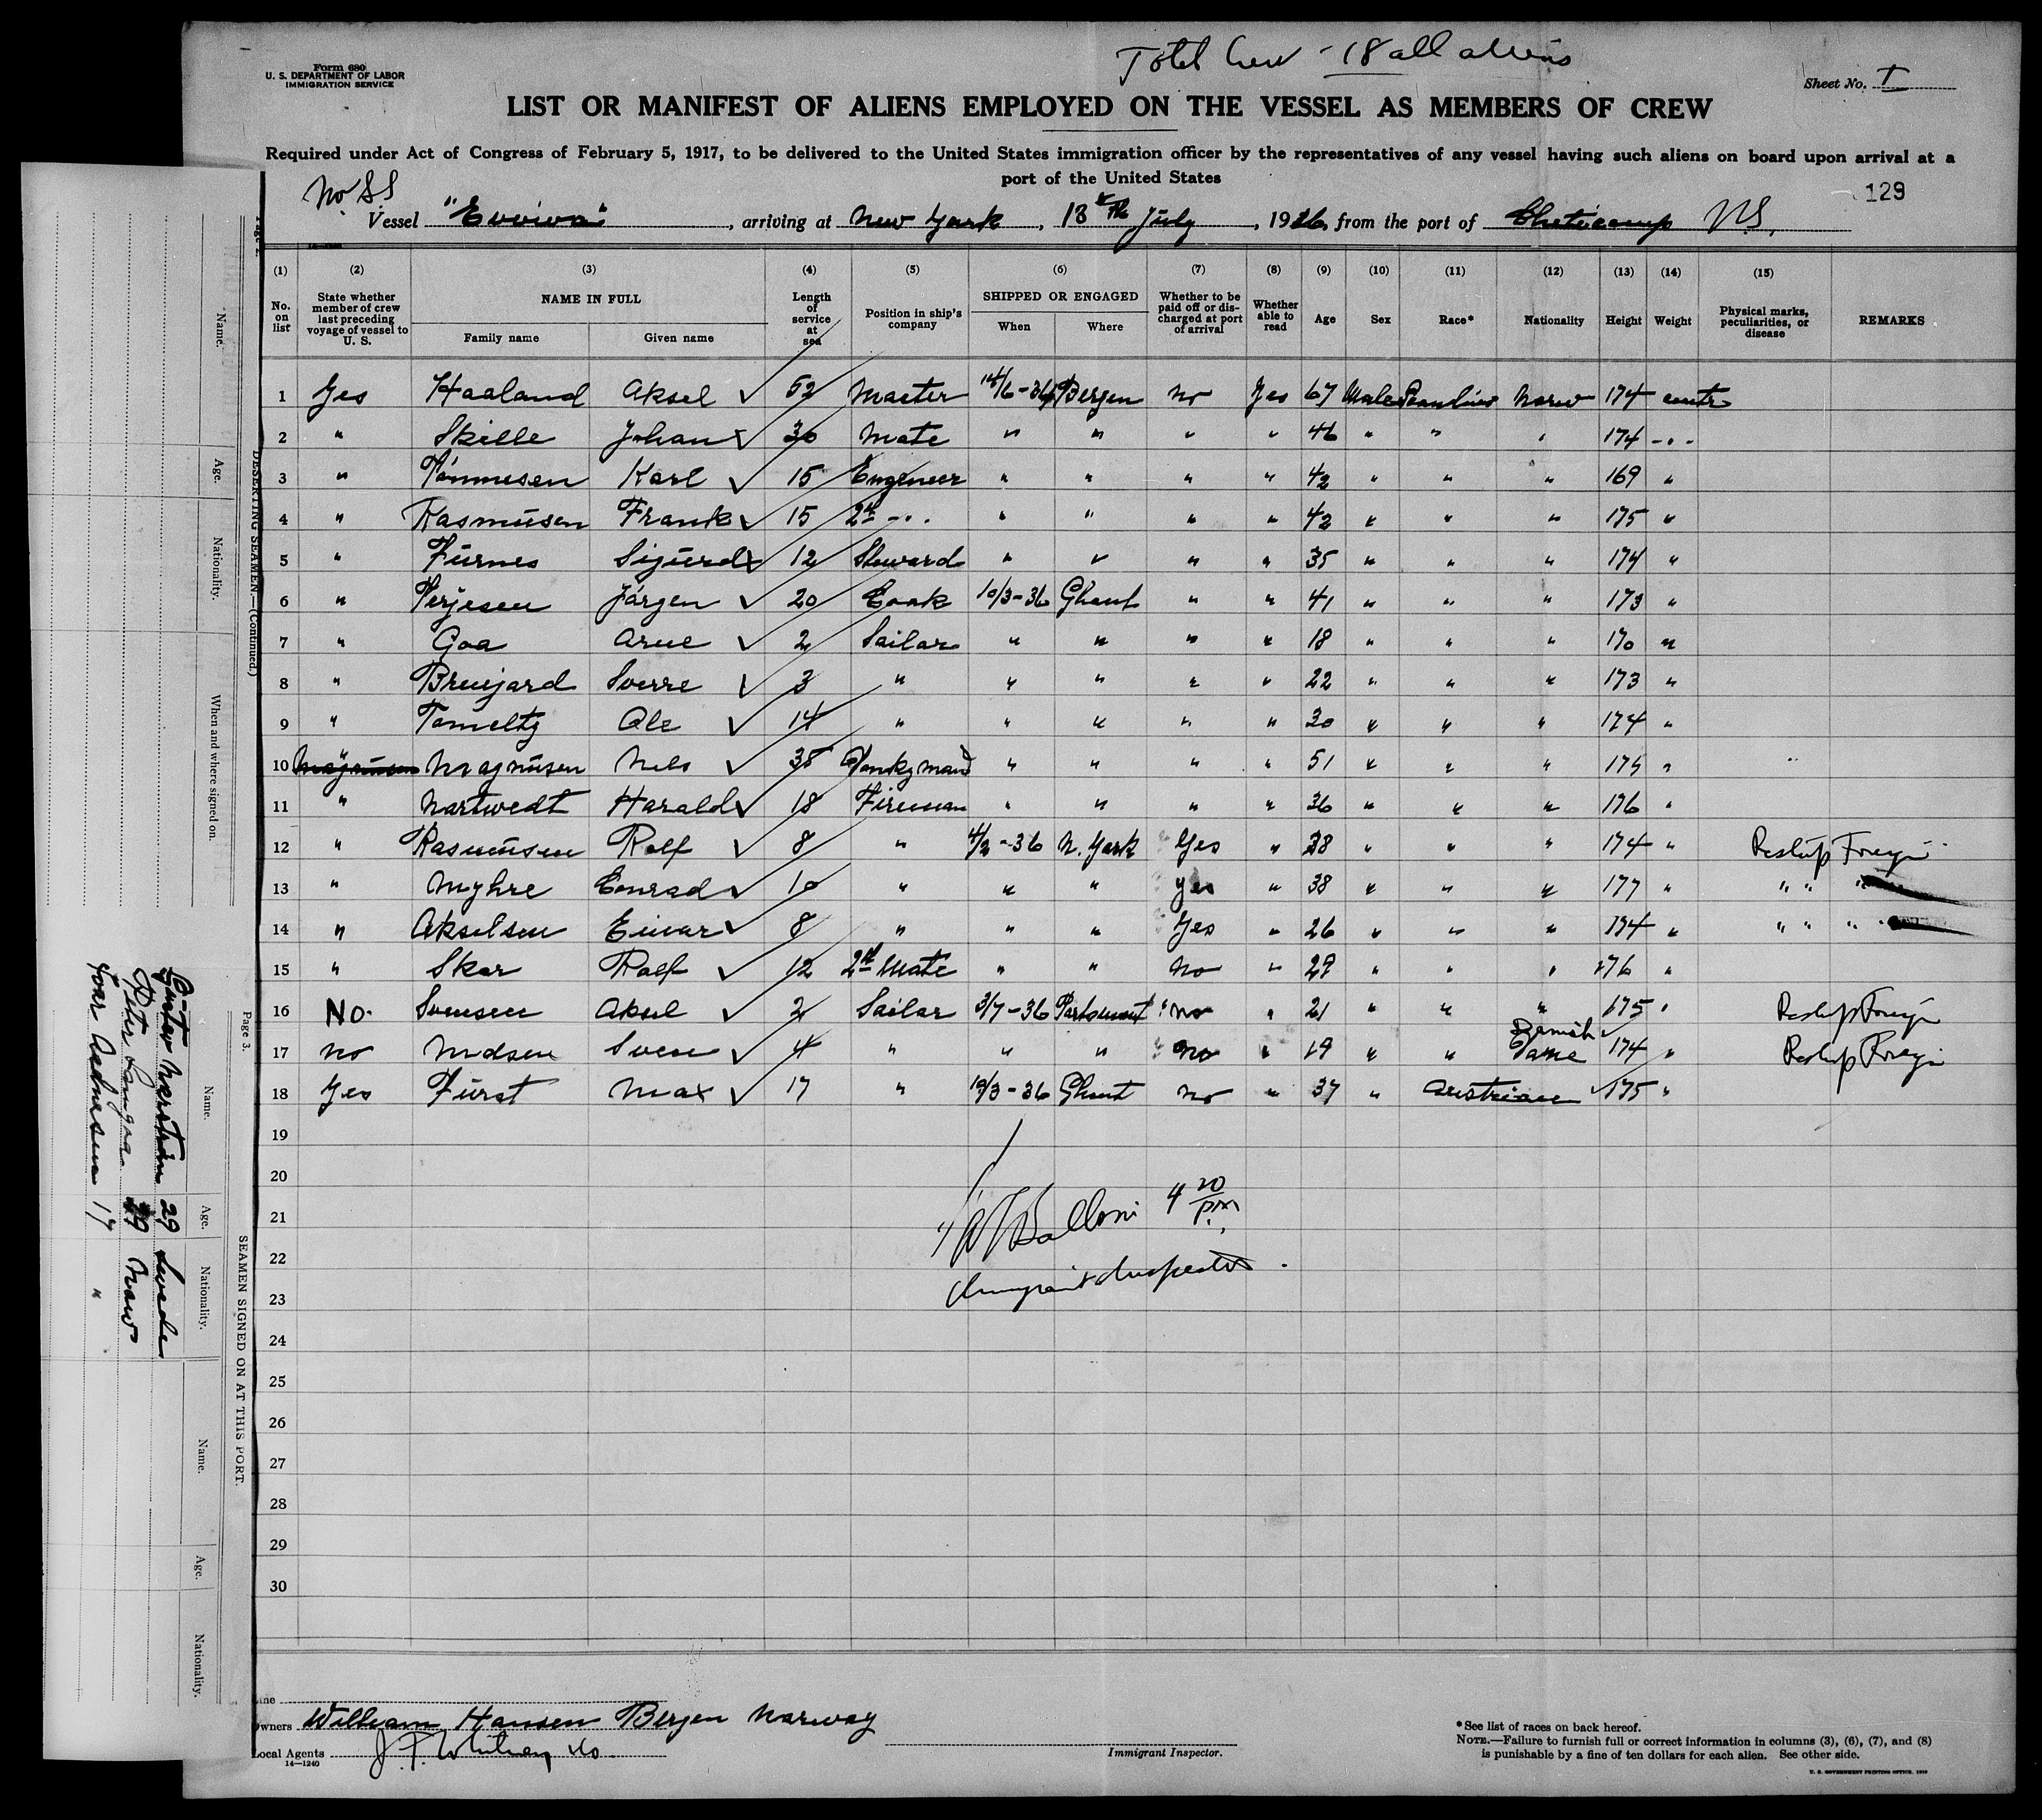 Total Crew - 18 all aliens
Form 680
U. S. DEPARTMENT OF LABOR
IMMIGRATION SERVICE
Sheet No. I
LIST OR MANIFEST OF ALIENS EMPLOYED ON THE VESSEL AS MEMBERS OF CREW
Required under Act of Congress of February 5, 1917, to be delivered to the United States immigration officer by the representatives of any vessel having such aliens on board upon arrival at a
port of the United States
129
No. S.S
Vessel "Evviva", arriving at New York, 13th July, 1936, from the port of Cheticamp N.S.
(1) (2) (3) (4) (5) (6) (7) (8) (9) (10) (11) (12) (13) (14) (15)
No. on list State whether member of crew last preceding voyage of vessel to U. S. NAME IN FULL Family name Given name Length of service at sea Position in ship's company SHIPPED OR ENGAGED When Where Whether to be paid off or discharged at port of arrival Whether able to read Age Sex Race* Nationality Height Weight Physical marks, peculiarities, or disease REMARKS
1 Yes Haaland Aksel 52 Master Bergen no Yes 67 Male Norw 174
2 " Skille Johan 30 Mate " " " " 46 " " " 174 - " -
3 " Tönnesen Karl 15 Engineer " " " " 42 " " " 169 "
4 " Rasmüsen Frank 15 2nd - " - " " " " 42 " " " 175 "
5 " Fürnes Sigurd 12 Steward " " " " 35 " " " 174 "
6 " Terjesen Jörgen 20 Cook 10/3-36 Ghent " " 41 " " " 173 "
7 " Goa Arne 2 Sailor " " " " 18 " " " 170 "
8 " Sverre 3 " " " " " 22 " " " 173 "
9 " Ole 14 " " " " " 30 " " " 174 "
10 Magnüsen Nels 38 Donkeyman " " " " 51 " " " 175 "
11 " Nartwedt Harald 18 Fireman " " " " 36 " " " 176 "
12 " Rasmüsen Rolf 8 " 4/2-36 N. York Yes " 28 " " " 174 " Reship Foreign
13 " Myhre Conrad 10 " " " yes " 38 " " " 177 " " " "
14 " Akselsen Einar 8 " " " Yes " 26 " " " 174 " " " "
15 " Skar Rolf 12 2nd Mate " " no " 29 " " " 176 "
16 No. Svensen Aksel 2 Sailor 3/7-36 no " 21 " " " 175 " Reship Foreign
17 no Svend 4 " " " no " 19 " " Danish Dane 174 " Reship Foreign
18 Yes Fürst Max 17 " 10/3-36 Ghent no " 37 " Austrian 175 "
19
20
21
22
23
24
25
26
27
28
29
30
4 20 pm
Immigrant Inspector.
Line
Owners William Hansen Bergen Norway
Local Agents J. F. Whitney & Co.
14—1240
Immigrant Inspector.
*See list of races on back hereof.
NOTE.—Failure to furnish full or correct information in columns (3), (6), (7), and (8)
is punishable by a fine of ten dollars for each alien. See other side.
U. S. GOVERNMENT PRINTING OFFICE
DESERTING SEAMEN.—(Continued.)
Name. Age. Nationality. When and where signed on.
Page 3.
SEAMEN SIGNED ON AT THIS PORT.
Name. Age. Nationality. Name. Age. Nationality.
29 Swede
29 Norw
17 "